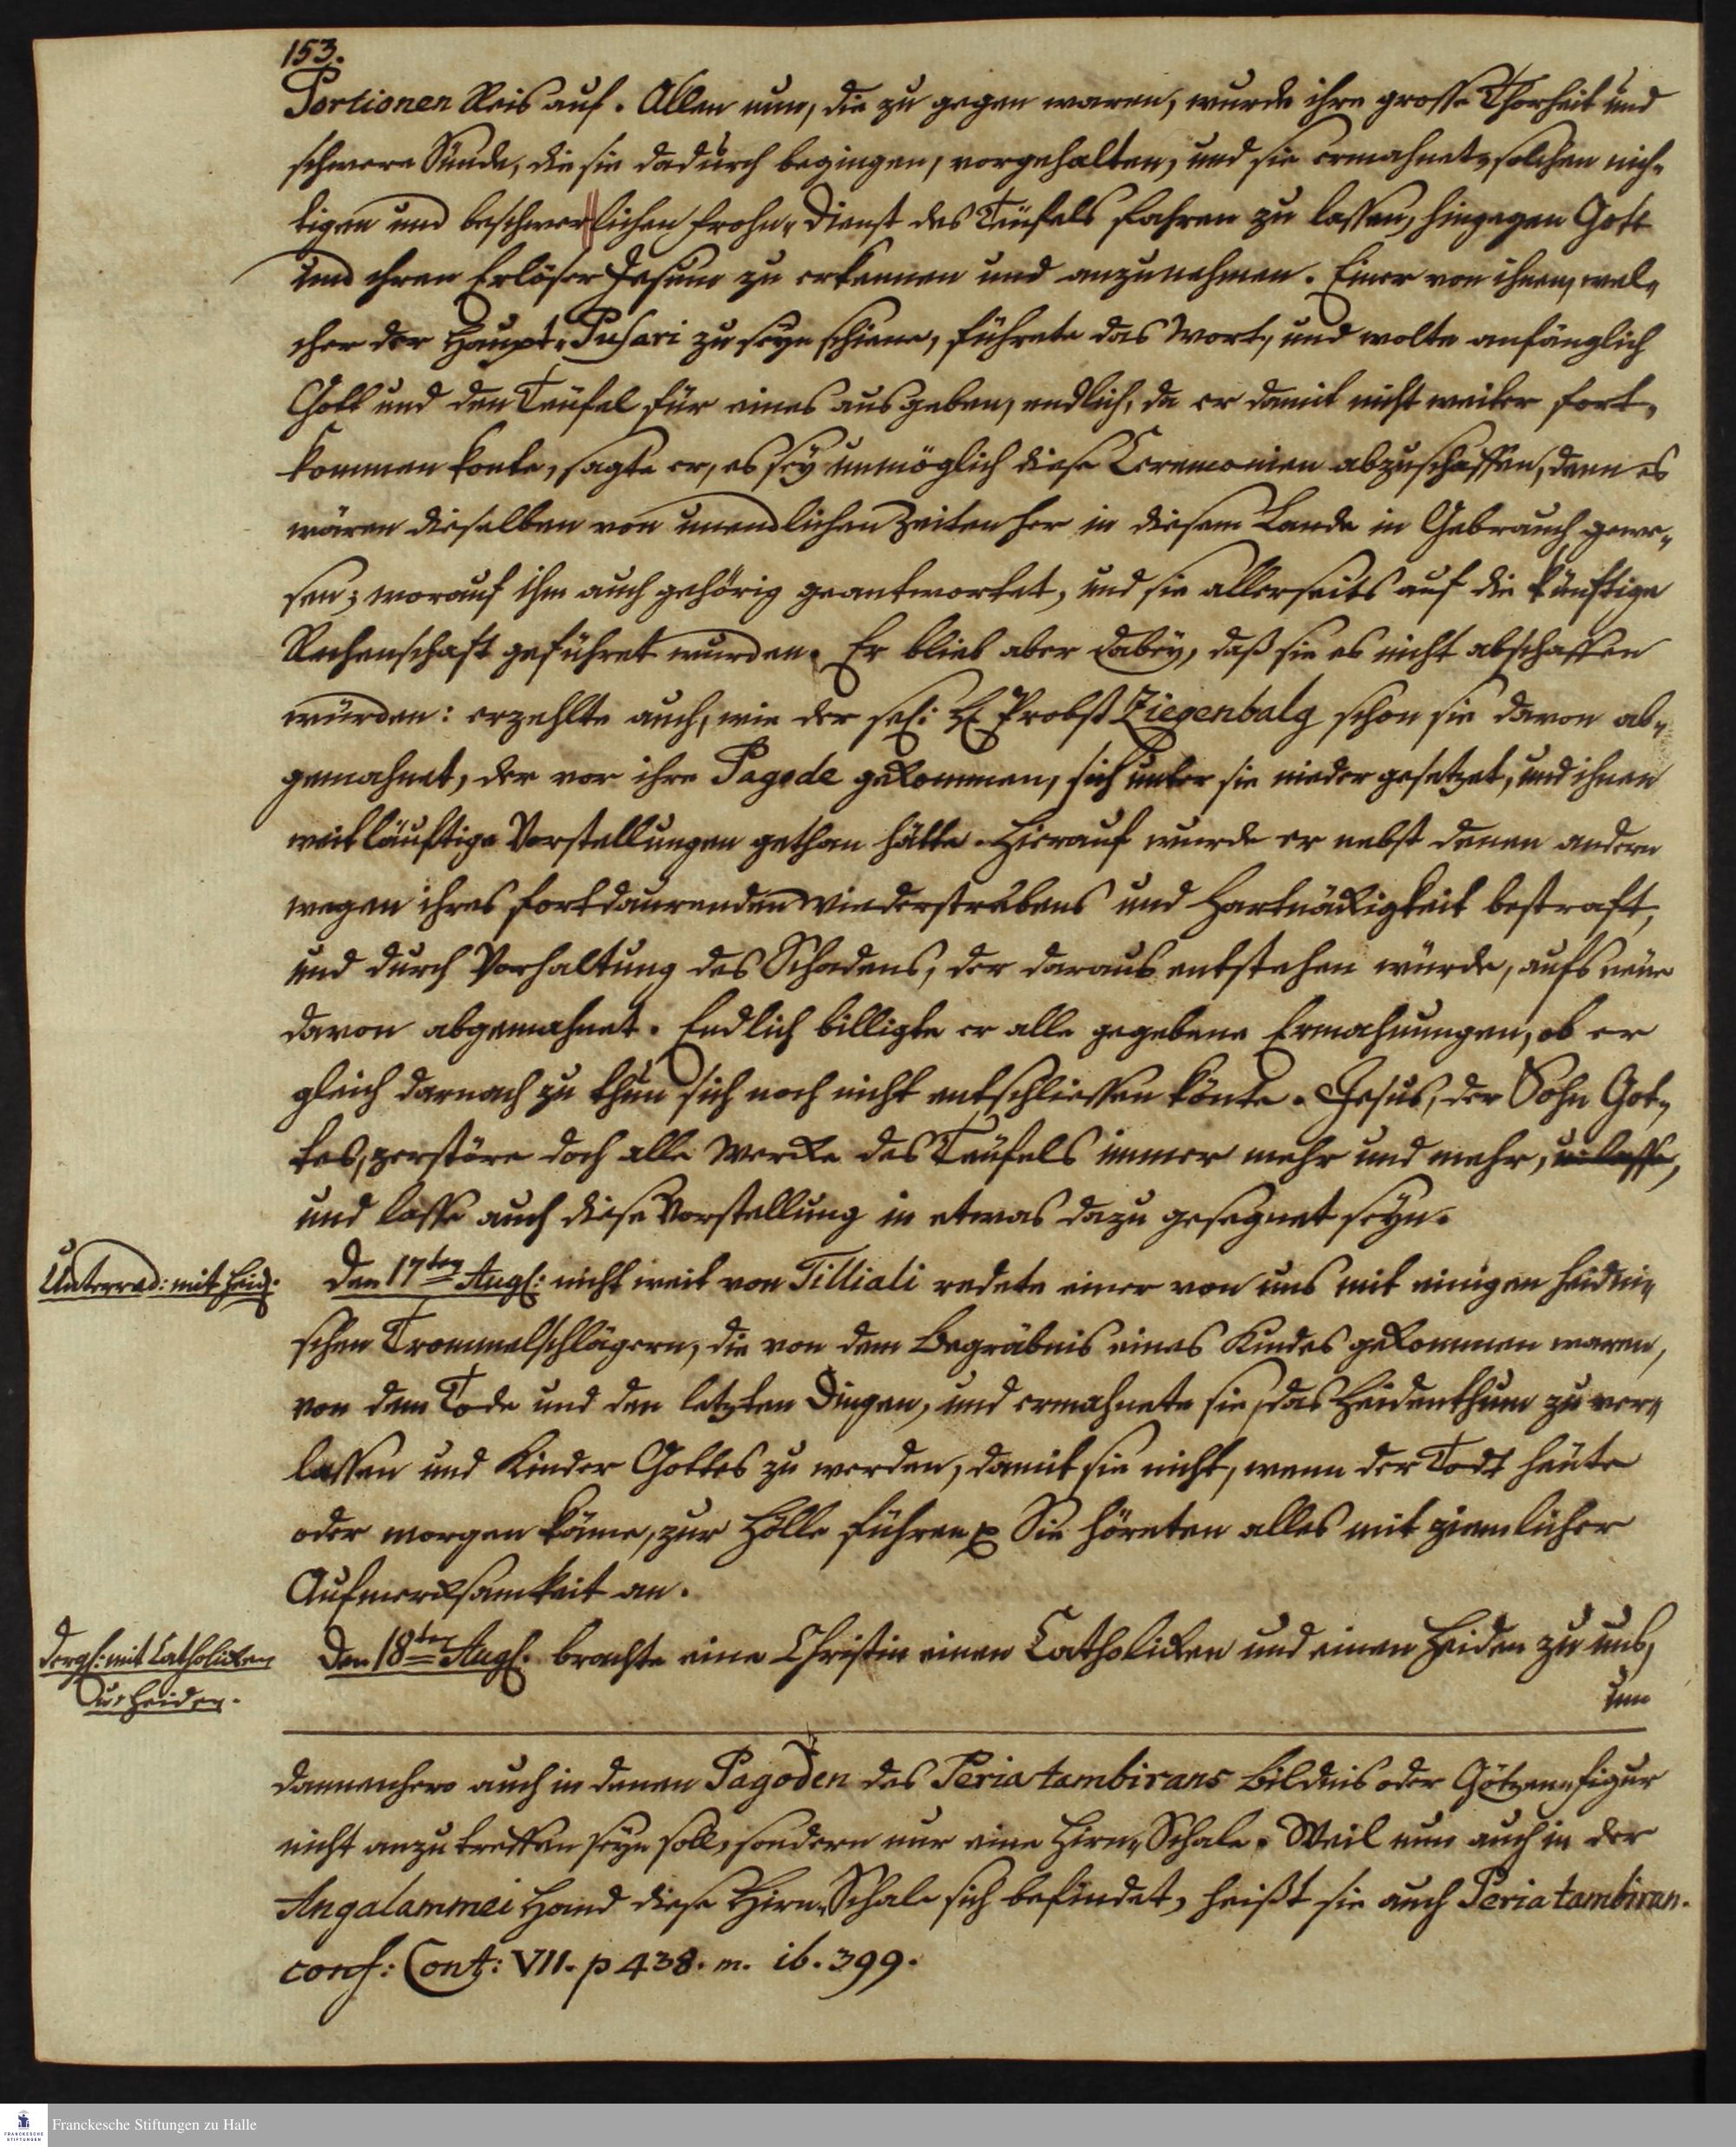 153.
Portionen Reis auf. Allen nun, die zu gegen waren, wurde ihre grosse Thorheit und
schwere Sünde, die sie dadurch begingen, vorgehalten, und sie ermahnet, solchen nich-
tigen und beschwerlichen Frohn-Dienst des Teufels fahren zu lassen, hingegen Gott
und ihren Erlöser Jesum zu erkennen und anzunehmen. Einer von ihnen, wel-
cher der Haupt-Pusari zu seyn schiene, führete das Wort, und wolte anfänglich
Gott und den Teufel für eines ausgeben, endlich, da er damit nicht weiter fort-
kommen konte, sagte er, es sey unmöglich diese Ceremonien abzuschaffen, denn es
wären dieselben von unendlichen Zeiten her in diesem Lande in Gebrauch gewe-
sen; worauf ihm auch gehörig geantwortet, und sie allerseits auf die künftige
Rechenschaft geführet wurden. Er blieb aber dabey, daß sie es nicht abschaffen
würden: erzehlte auch, wie der sel: H Probst Ziegenbalg schon sie davon ab-
gemahnet, der vor ihre Pagode gekommen, sich unter sie nieder gesetzet, und ihnen
weitläuftige Vorstellungen gethan hätte. Hierauf wurde er nebst denen andern
wegen ihres fortdaurenden Wiederstrebens und Hartnäckigkeit bestraft,
und durch Vorhaltung des Schadens, der daraus entstehen würde, aufs neue
davon abgemahnet. Endlich billigte er alle gegebene Ermahnungen, ob er
gleich darnach zu thun sich noch nicht entschliessen könte. Jesus, der Sohn Got-
tes, zerstöre doch alle Wercke des Teufels immer mehr und mehr, u. lasse,
und lasse auch diese Vorstellung in etwas dazu gesegnet seyn.
Unterred: mit Heid:
Den 17ten Aug: nicht weit von Tilliali redete einer von uns mit einigen heidni-
schen Trommelschlägern, die von dem Begräbnis eines Kindes gekommen waren,
von dem Tode und den letzten Dingen, und ermahnete sie, das Heidenthum zu ver-
lassen und Kinder Gottes zu werden, damit sie nicht, wenn der Todt heute
oder morgen käme, zur Hölle führen. Sie höreten alles mit ziemlicher
Aufmercksamkeit an.
Dergl: mit Catholicken
u. Heiden.
Den 18ten Aug. brachte eine Christin einen Catholicken und einen Heiden zu uns,
um
dannenhero auch in denen Pagoden des Peria tambirans Bildnis oder Götzenfigur
nicht anzutreffen seyn soll, sondern nur eine Hirn-Schale. Weil nun auch in der
Angalammei Hand diese Hirn-Schale sich befindet, heißt sie auch Peria tambiran.
conf: Cont: VII. p 438. m. ib. 399.
Franckesche Stiftungen zu Halle
FRANCKESCHE
STIFTUNGEN